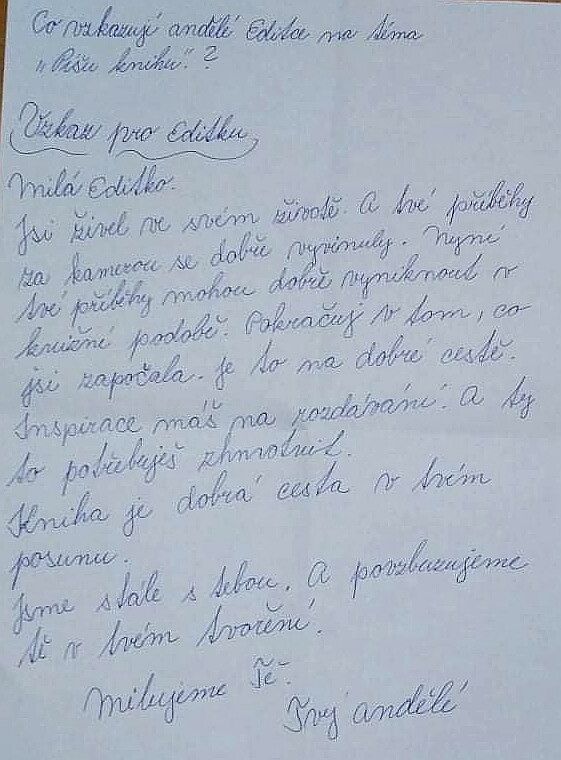 Co vzkazují andělé Editce na téma
"Píšu knihu"?
Vzkaz pro Editku
Milá Editko.
Jsi živel ve svém životě. A tvé příběhy
za kamerou se dobře vyvinuly. Nyní
tvé příběhy mohou dobře vyniknout v
knižní podobě. Pokračuj v tom, co
jsi započala. Je to na dobré cestě.
Inspirace máš na rozdávání. A ty
to potřebuješ zhmotnit.
Kniha je dobrá cesta v tvém
posunu.
Jsme stále s tebou. A povzbuzujeme
tě v tvém tvoření.
Milujeme Tě.
Tvý andělé